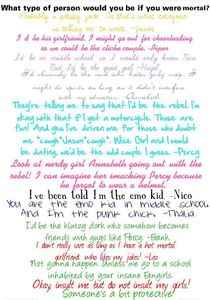 What type of person would you be if you were mortal?
Probably a preppy jock. I'm that's what everyone
is telling me to write. -Jason
I'd be his girlfriend. I might go out for cheerleading
so we could be the cliche couple. -Piper
I'd be in middle school so I would only know Nico
But I'd be the quiet girl. -Hazel
I'd obviously be the nerd who hates girly
might be sports as long as I didn't interfere
with my situation. -Annabeth
They're telling me to say that I'd be the rebel. I'm
okay with that if I get a motorcycle. Those are
fun! And yes I've driven one. For those who doubt
me *cough*Jason*cough*. Wise Girl and I would
be dating, we'd be the odd couple I guess. -Percy
Look at nerdy girl Annabeth going out with the
rebel! I can imagine her smacking Percy because
he forgot to wear a helmet.
I've been told I'm the emo kid. -Nico
You are the emo kid in middle school.
And I'm the punk chick. -Thalia
I'd be the klutzy dork who somehow becomes
friends with guys like Percy. -Frank
I don't really care as long as I have a hot mortal
girlfriend who likes my jokes! -Leo
Not gonna happen unless we go to a school
inhabited by your insane fangirls.
Okay insult me but do not insult my girls!
Someone's a bit protective!